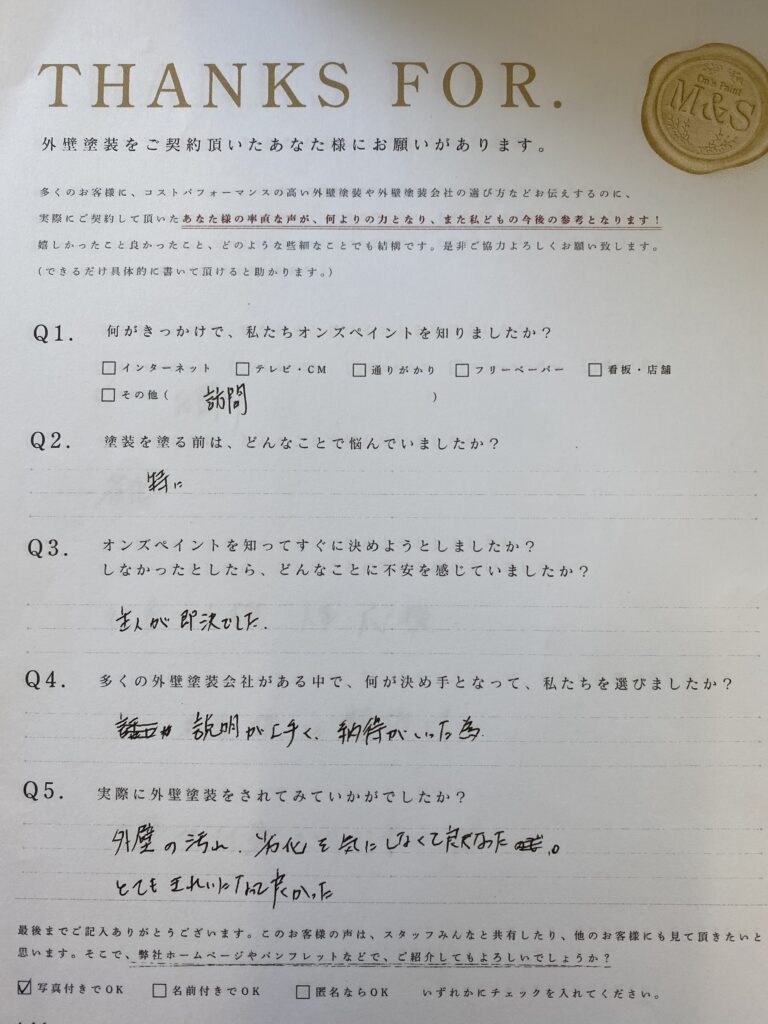 THANKS FOR.
On's Paint
M&S
外壁塗装をご契約頂いたあなた様にお願いがあります。
多くのお客様に、コストパフォーマンスの高い外壁塗装や外壁塗装会社の選び方などお伝えするのに、
実際にご契約して頂いたあなた様の率直な声が、何よりの力となり、また私どもの今後の参考となります！
嬉しかったこと良かったこと、どのような些細なことでも結構です。是非ご協力よろしくお願い致します。
(できるだけ具体的に書いて頂けると助かります。)
Q1. 何がきっかけで、私たちオンズペイントを知りましたか？
□ インターネット □ テレビ・CM □ 通りがかり □ フリーペーパー □ 看板・店舗
□ その他( 訪問 )
Q2. 塗装を塗る前は、どんなことで悩んでいましたか？
特に
Q3. オンズペイントを知ってすぐに決めようとしましたか？
しなかったとしたら、どんなことに不安を感じていましたか？
主人が即決でした.
Q4. 多くの外壁塗装会社がある中で、何が決め手となって、私たちを選びましたか？
説明が上手く、納得がいった為
Q5. 実際に外壁塗装をされてみていかがでしたか？
外壁の汚れ、劣化を気にしなくて良くなった。
とてもきれいになって良かった
最後までご記入ありがとうございます。このお客様の声は、スタッフみんなと共有したり、他のお客様にも見て頂きたいと
思います。そこで、弊社ホームページやパンフレットなどで、ご紹介してもよろしいでしょうか？
☑ 写真付きでOK □ 名前付きでOK □ 匿名ならOK いずれかにチェックを入れてください。